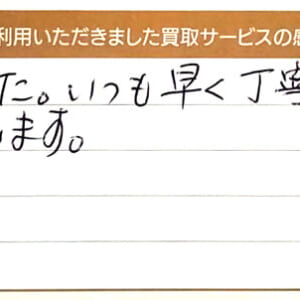 利用いただきました買取サービスの感
た。いつも早く丁寧
します。